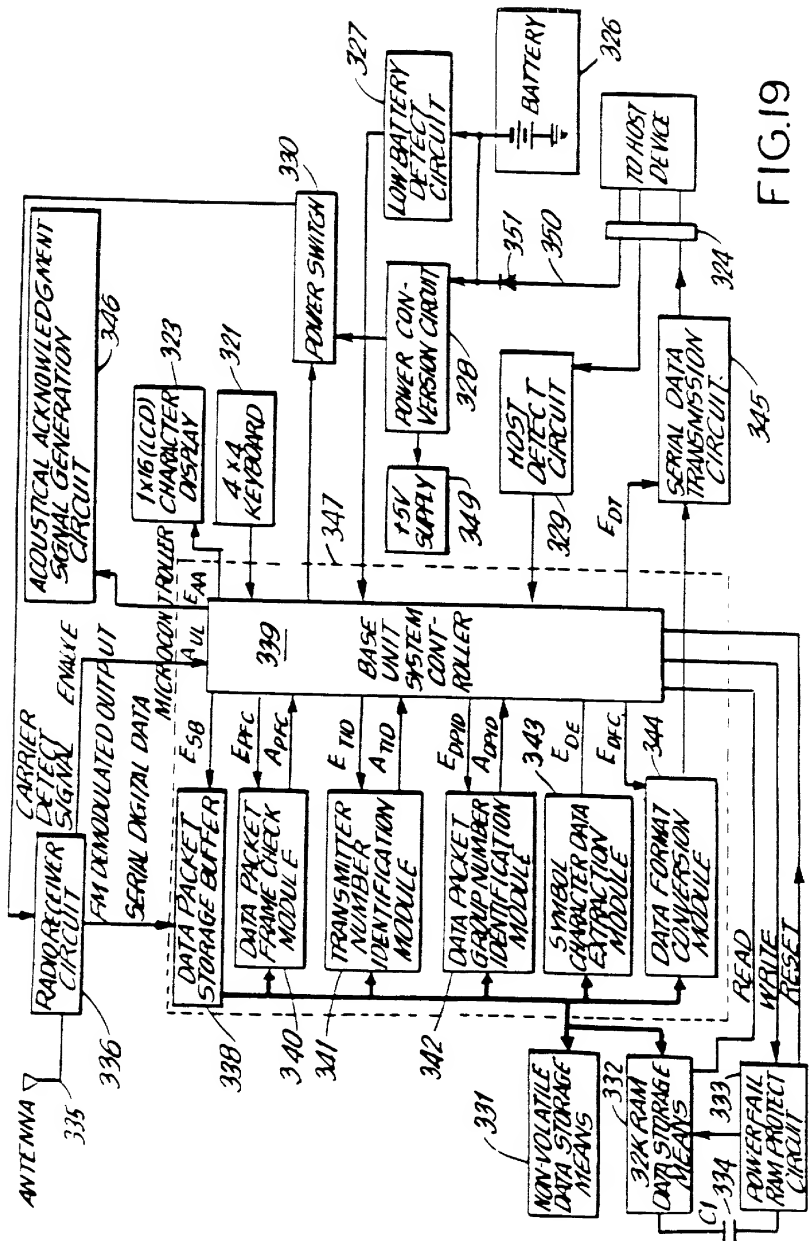 ANTENNA
335
RADIO RECEIVER
CIRCUIT
336
CARRIER
DETECT
SIGNAL
ENABLE
FM DEMODULATED OUTPUT
SERIAL DIGITAL DATA
MICROCONTROLLER
ACOUSTICAL ACKNOWLEDGMENT
SIGNAL GENERATION
CIRCUIT
346
AUL
EAA
1x16 (LCD)
CHARACTER
DISPLAY
323
4x4
KEYBOARD
321
347
POWER SWITCH
330
LOW BATTERY
DETECT
CIRCUIT
327
BATTERY
326
POWER CON-
VERSION CIRCUIT
328
351
350
+5V
SUPPLY
349
HOST
DETECT
CIRCUIT
329
TO HOST
DEVICE
324
SERIAL DATA
TRANSMISSION
CIRCUIT
345
EDT
339
BASE
UNIT
SYSTEM
CONT-
ROLLER
ESB
EPFC
APFC
ETID
ATID
EDPID
ADPID
EDE
EDFC
DATA PACKET
STORAGE BUFFER
338
DATA PACKET
FRAME CHECK
MODULE
340
TRANSMITTER
NUMBER
IDENTIFICATION
MODULE
341
DATA PACKET
GROUP NUMBER
IDENTIFICATION
MODULE
342
SYMBOL
CHARACTER DATA
EXTRACTION
MODULE
343
DATA FORMAT
CONVERSION
MODULE
344
NON-VOLATILE
DATA STORAGE
MEANS
331
32K RAM
DATA STORAGE
MEANS
332
POWER FAIL
RAM PROTECT
CIRCUIT
333
C1
334
READ
WRITE
RESET
FIG.19